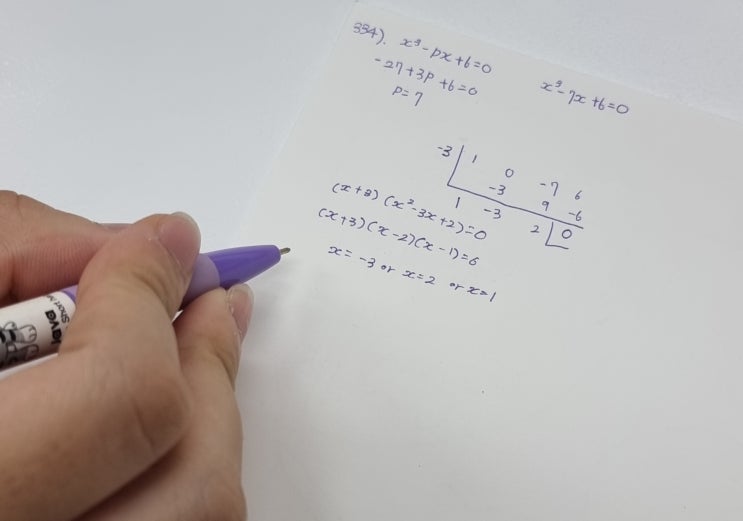 334). x³-px+6=0
-27+3p+6=0
p=7
x³-7x+6=0
-3 1 0 -7 6
-3 9 -6
1 -3 2 0
(x+3)(x²-3x+2)=0
(x+3)(x-2)(x-1)=0
x=-3 or x=2 or x=1
Java